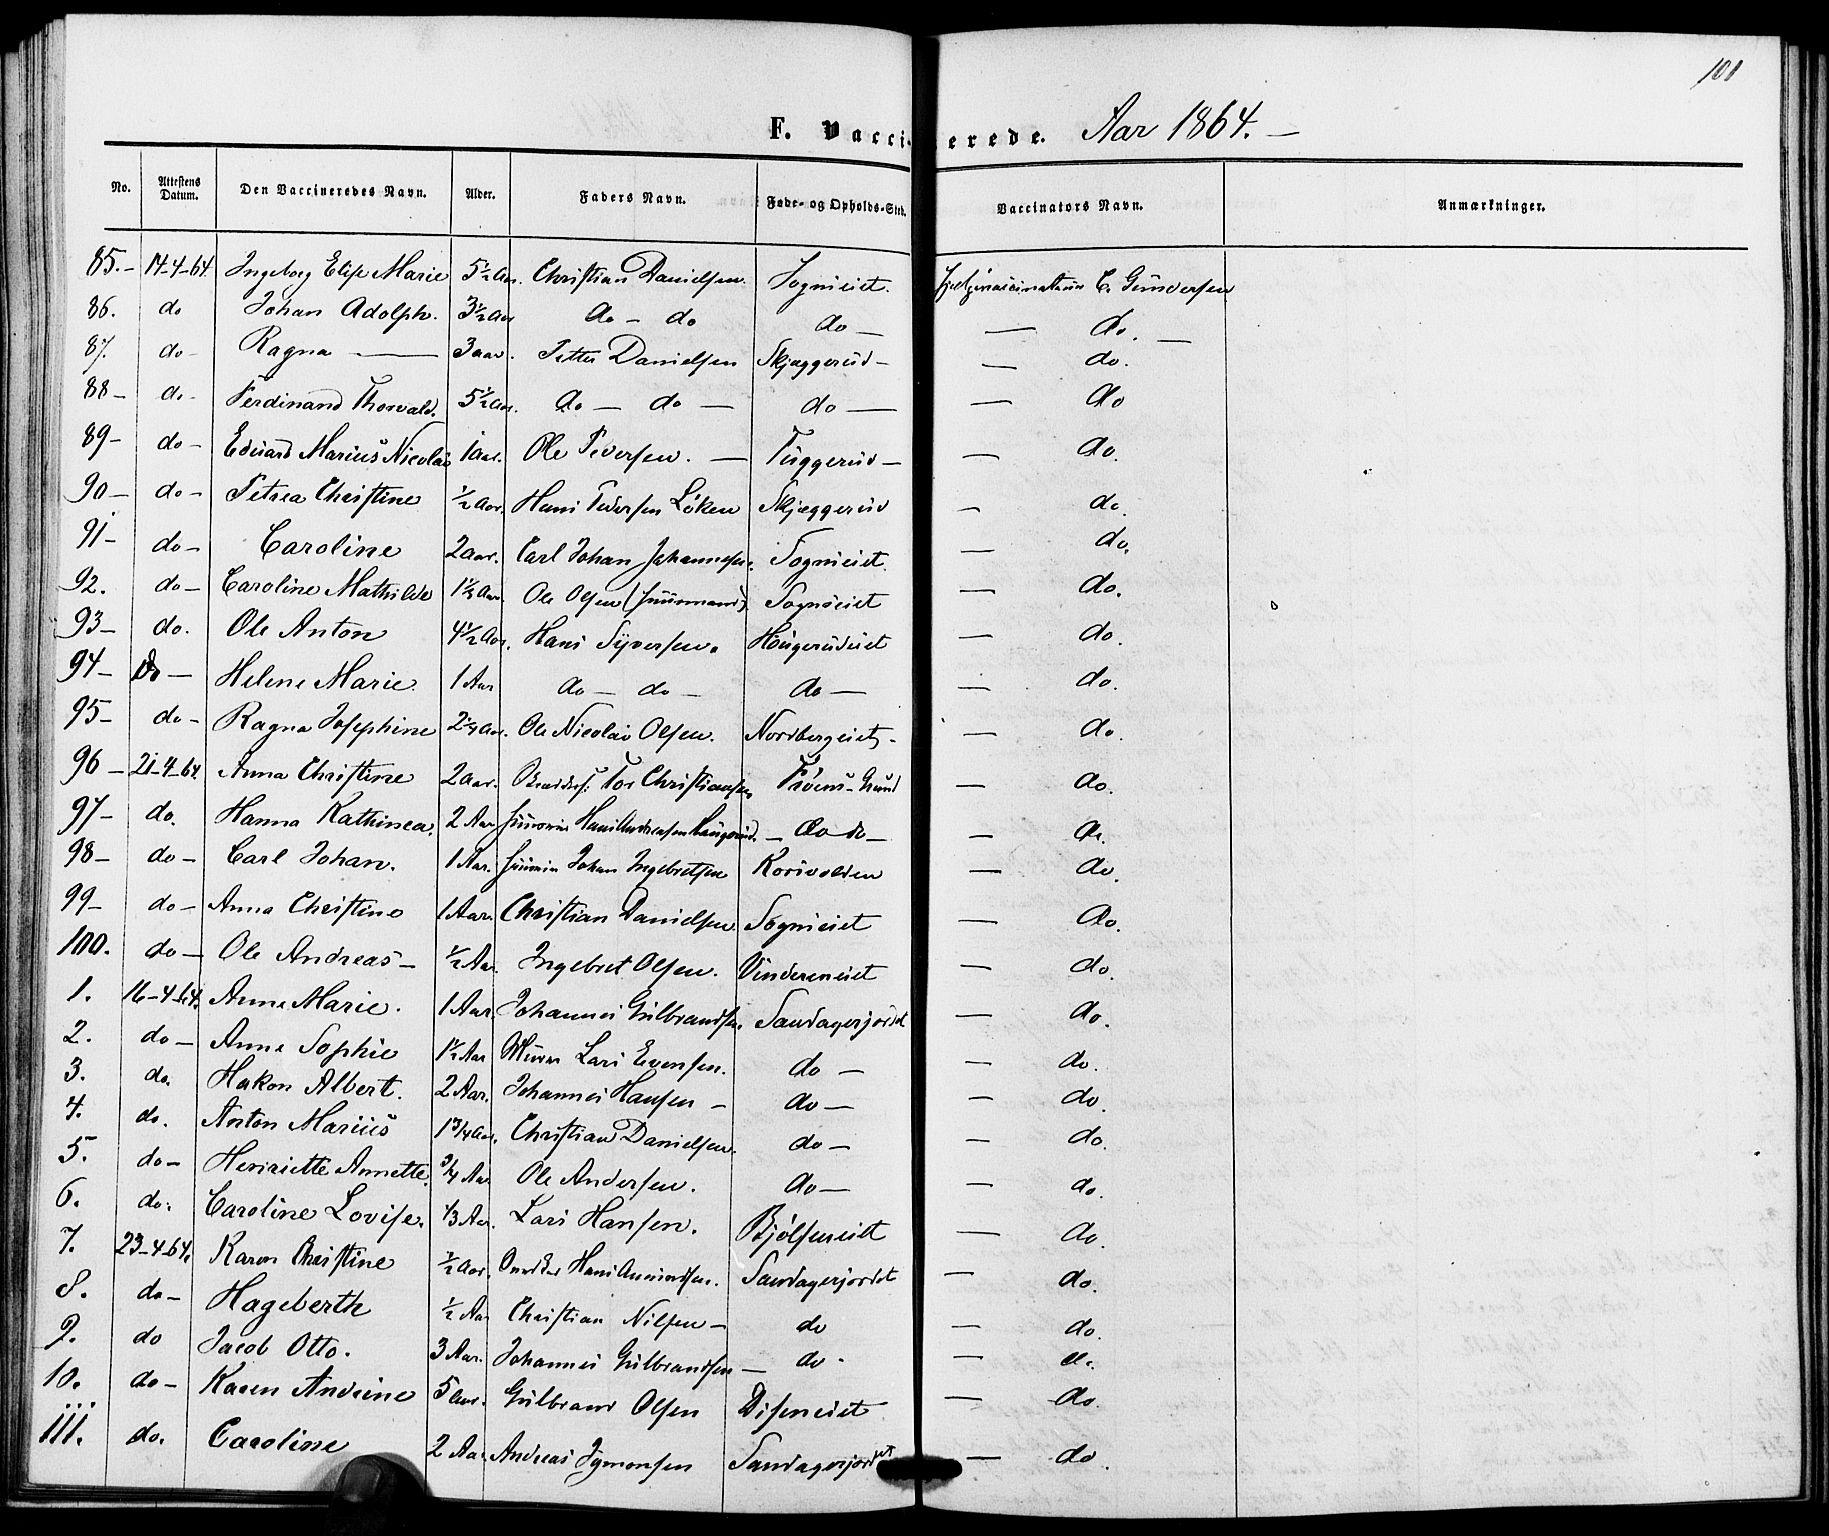 101
F. Vaccinerede. Aar 1864. —
No. Attestens Datum. Den Vaccineredes Navn. Alder. Faders Navn. Føde- og Opholds-Sted. Vaccinators Navn. Anmærkninger.
85. – 14-4-64 Ingeborg Elise Marie 5½ Aar. Christian Danielsen. Sogneiet. Hjelpevaccinateur C. Gundersen
86. do Johan Adolph. 3½ Aar do – do do — — do. —
87. do – Ragna — 3 aar. Petter Danielsen Skjæggerud – — do.
88 – do – Ferdinand Thorvald. 5½ Aar. do — do — do — — do
89 – do – Eduard Marius Nicolai 1 aar. Ole Pedersen. — Tuggerud – — do.
90 – do – Petrea Christine ½ Aar. Hans Pedersen Löken Skjæggerud – do.
91 – do – Caroline 2 aar. Carl Johan Johannesen. Sogneiet. — do.
92. do – Caroline Mathilde 1½ Aar. Ole Olsen (Huusmand) Sogneiet — do.
93 – do. Ole Anton 4½ Aar. Hans Syversen. Hougerudeiet — do.
94 – do — Helene Marie 1 Aar do – do – do — — do.
95 – do – Ragna Josephine 2¼ Aar. Ole Nicolai Olsen. Nordbergeiet – — do.
96 – 21-4-64 Anna Christine 2 aar. Tor Christiansen Fröens-Grund — do.
97 – do. Hanna Kathinca. 2 Aar Hans Andreasen Haugerud. – do do – — do.
98 – do – Carl Johan. 1 Aar. Johan Ingebretsen Korsvolden — do.
99 – do – Anna Christine 1 Aar. Christian Danielsen Sogneiet — do.
100. do — Ole Andreas – ½ Aar. Ingebret Olsen. Vindereneiet — do.
1. 16-4-64. Anne Marie. 1 Aar. Johannes Gulbrandsen. Sandagerjordet — do.
2. do — Anne Sophie 1½ Aar Murer Lars Evensen. do — — do.
3. do. Hakon Albert. 2 Aar. Johannes Hansen – do — — do.
4. do. Anton Marius 1¾ Aar. Christian Danielsen. do — — do.
5. do – Henriette Annette. ¾ Aar Ole Andersen. do — — do.
6. do. Caroline Lovise. ⅓ Aar. Lars Hansen. Bjölseneiet — do.
7. 23-4-64. Karen Christine ½ Aar. Hans Amundsen. Sandagerjordet — do.
8. do – Hageberth ½ Aar Christian Nilsen – do — do.
9. do Jacob Otto. 3 Aar. Johannes Gulbrandsen — do. — do.
10. do – Karen Andrine 5 aar. Gulbrand Olsen Diseneiet — do.
111. do. Caroline 2 Aar. Andreas Symonsen Sandagerjordet — do.